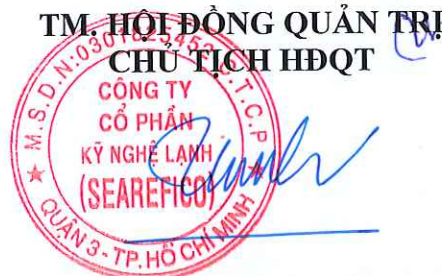 TM. HỘI ĐỒNG QUẢN TRỊ
CHỦ TỊCH HĐQT
M.S.D.N: C.T.C.P
CÔNG TY
CỔ PHẦN
KỸ NGHỆ LẠNH
(SEAREFICO)
QUẬN 3 - TP. HỒ CHÍ MINH